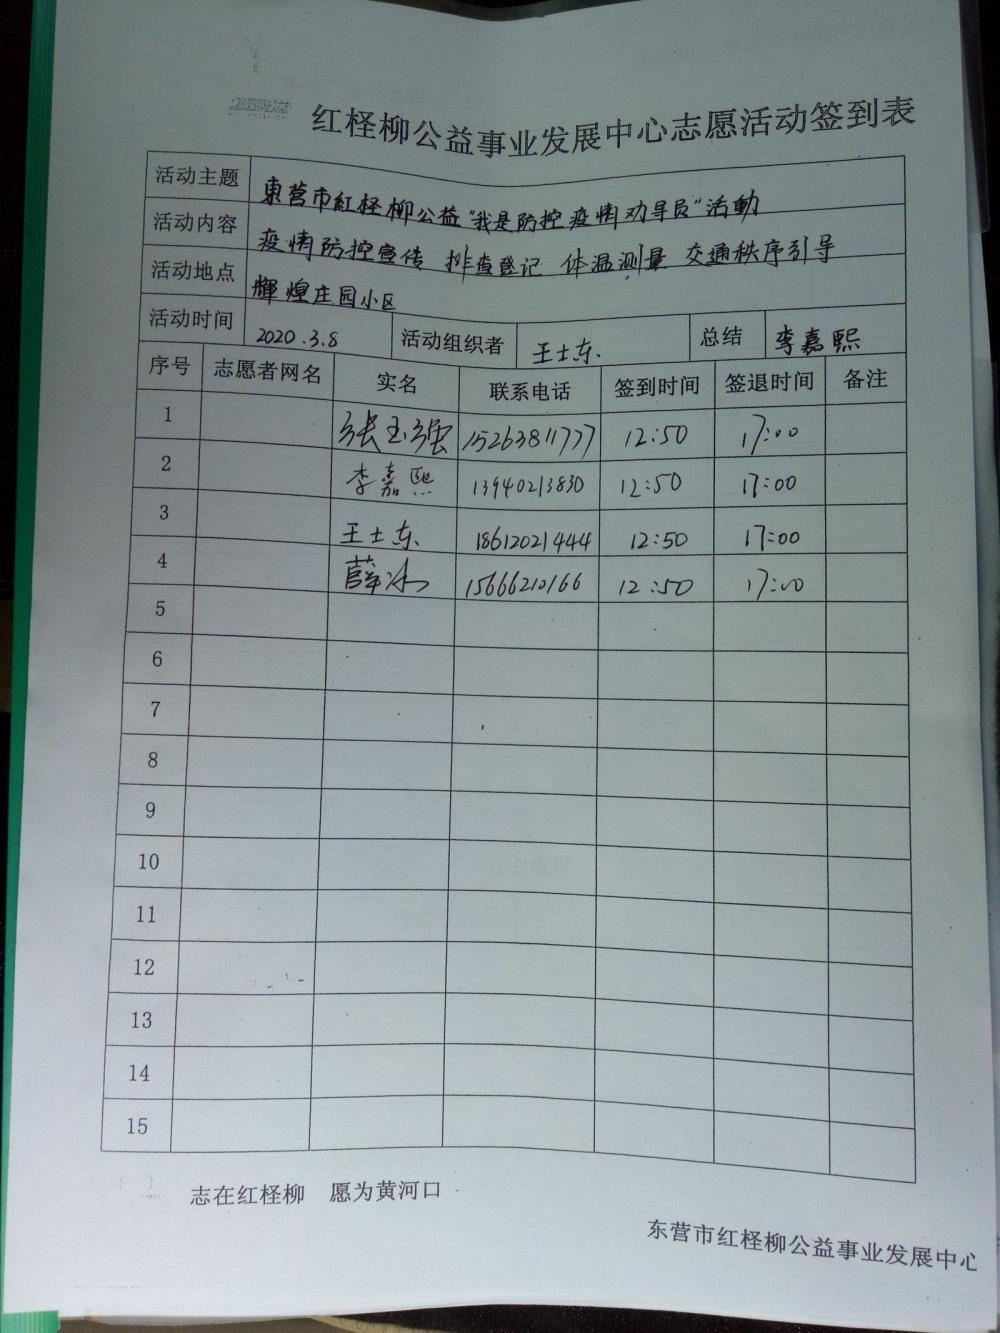 红柽柳公益事业发展中心志愿活动签到表
活动主题 東营市紅柽柳公益"我是防控疫情劝导员"活動
活动内容 疫情防控宣传 排查登记 体温测量 交通秩序引导
活动地点 輝煌庄园小区
活动时间 2020.3.8 活动组织者 王士东 总结 李嘉熙
序号 志愿者网名 实名 联系电话 签到时间 签退时间 备注
1 张玉强 15263811777 12:50 17:00
2 李嘉熙 13940213830 12:50 17:00
3 王士东 18612021444 12:50 17:00
4 薛冰 15666210166 12:50 17:00
5
6
7
8
9
10
11
12
13
14
15
志在红柽柳 愿为黄河口
东营市红柽柳公益事业发展中心